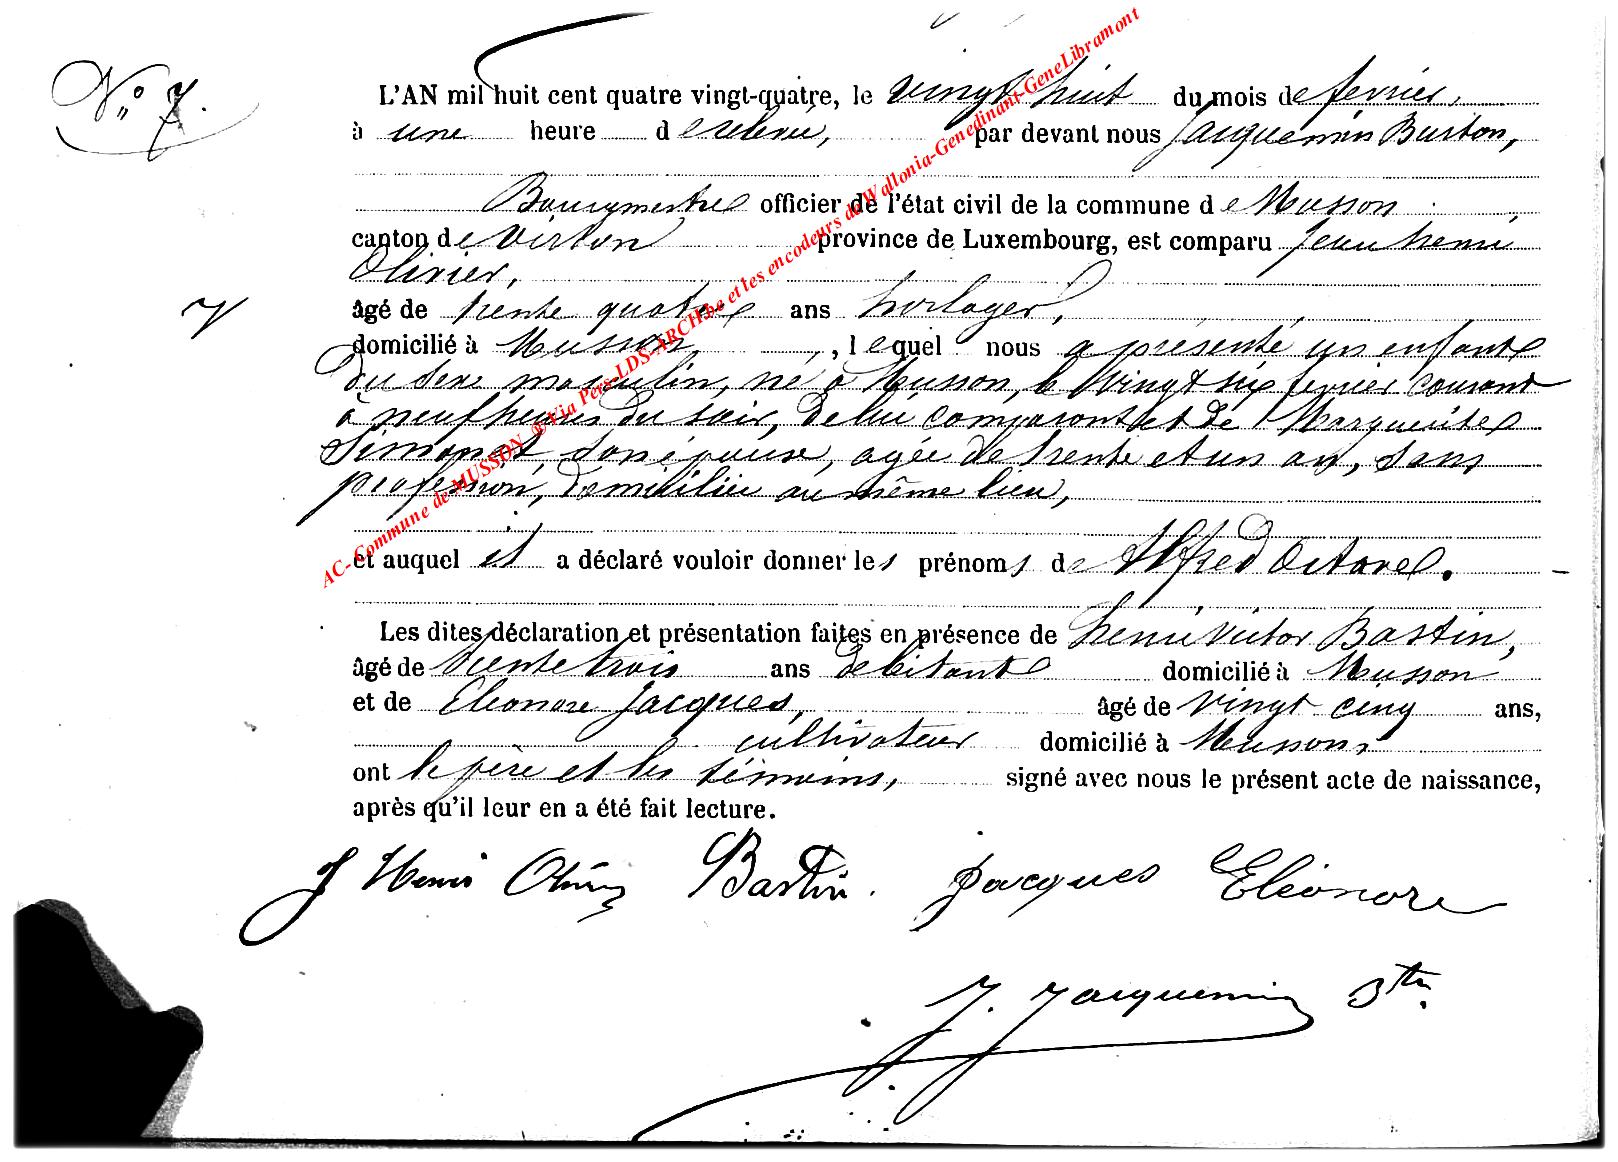 N° 7.
L'AN mil huit cent quatre vingt-quatre, le vingt huit du mois de fevrier,
à une heure de relevée, par devant nous Jacquemin Burton,
Bourgmestre officier de l'état civil de la commune de Musson
canton de Virton province de Luxembourg, est comparu Jean henri
Olivier,
âgé de trente quatre ans horloger,
domicilié à Musson, lequel nous a présenté un enfant
du sexe masculin, né à Musson, le vingt six fevrier courant
à neuf heures du soir, de lui comparant et de Marguerite
Simonet, son épouse, agée de trente et un an, sans
profession, domiciliée au même lieu,
et auquel il a déclaré vouloir donner les prénoms de Alfred Octave.
Les dites déclaration et présentation faites en présence de henri Victor Bastin,
âgé de trente trois ans debitant domicilié à Musson
et de Eléonore Jacques, âgé de vingt cinq ans,
cultivateur domicilié à Musson,
ont le père et les témoins, signé avec nous le présent acte de naissance,
après qu'il leur en a été fait lecture.
J Henri Olivier Bastin. Jacques Eléonore
J. Jacquemin Btn
AC- Commune de MUSSON @ Via Pers-LDS-ARCH.be et les encodeurs de Wallonia-Genedinant-GeneLibramont